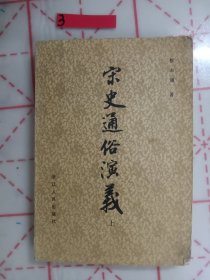 3
宋史通俗演義
上
蔡东藩 著
浙江人民出版社